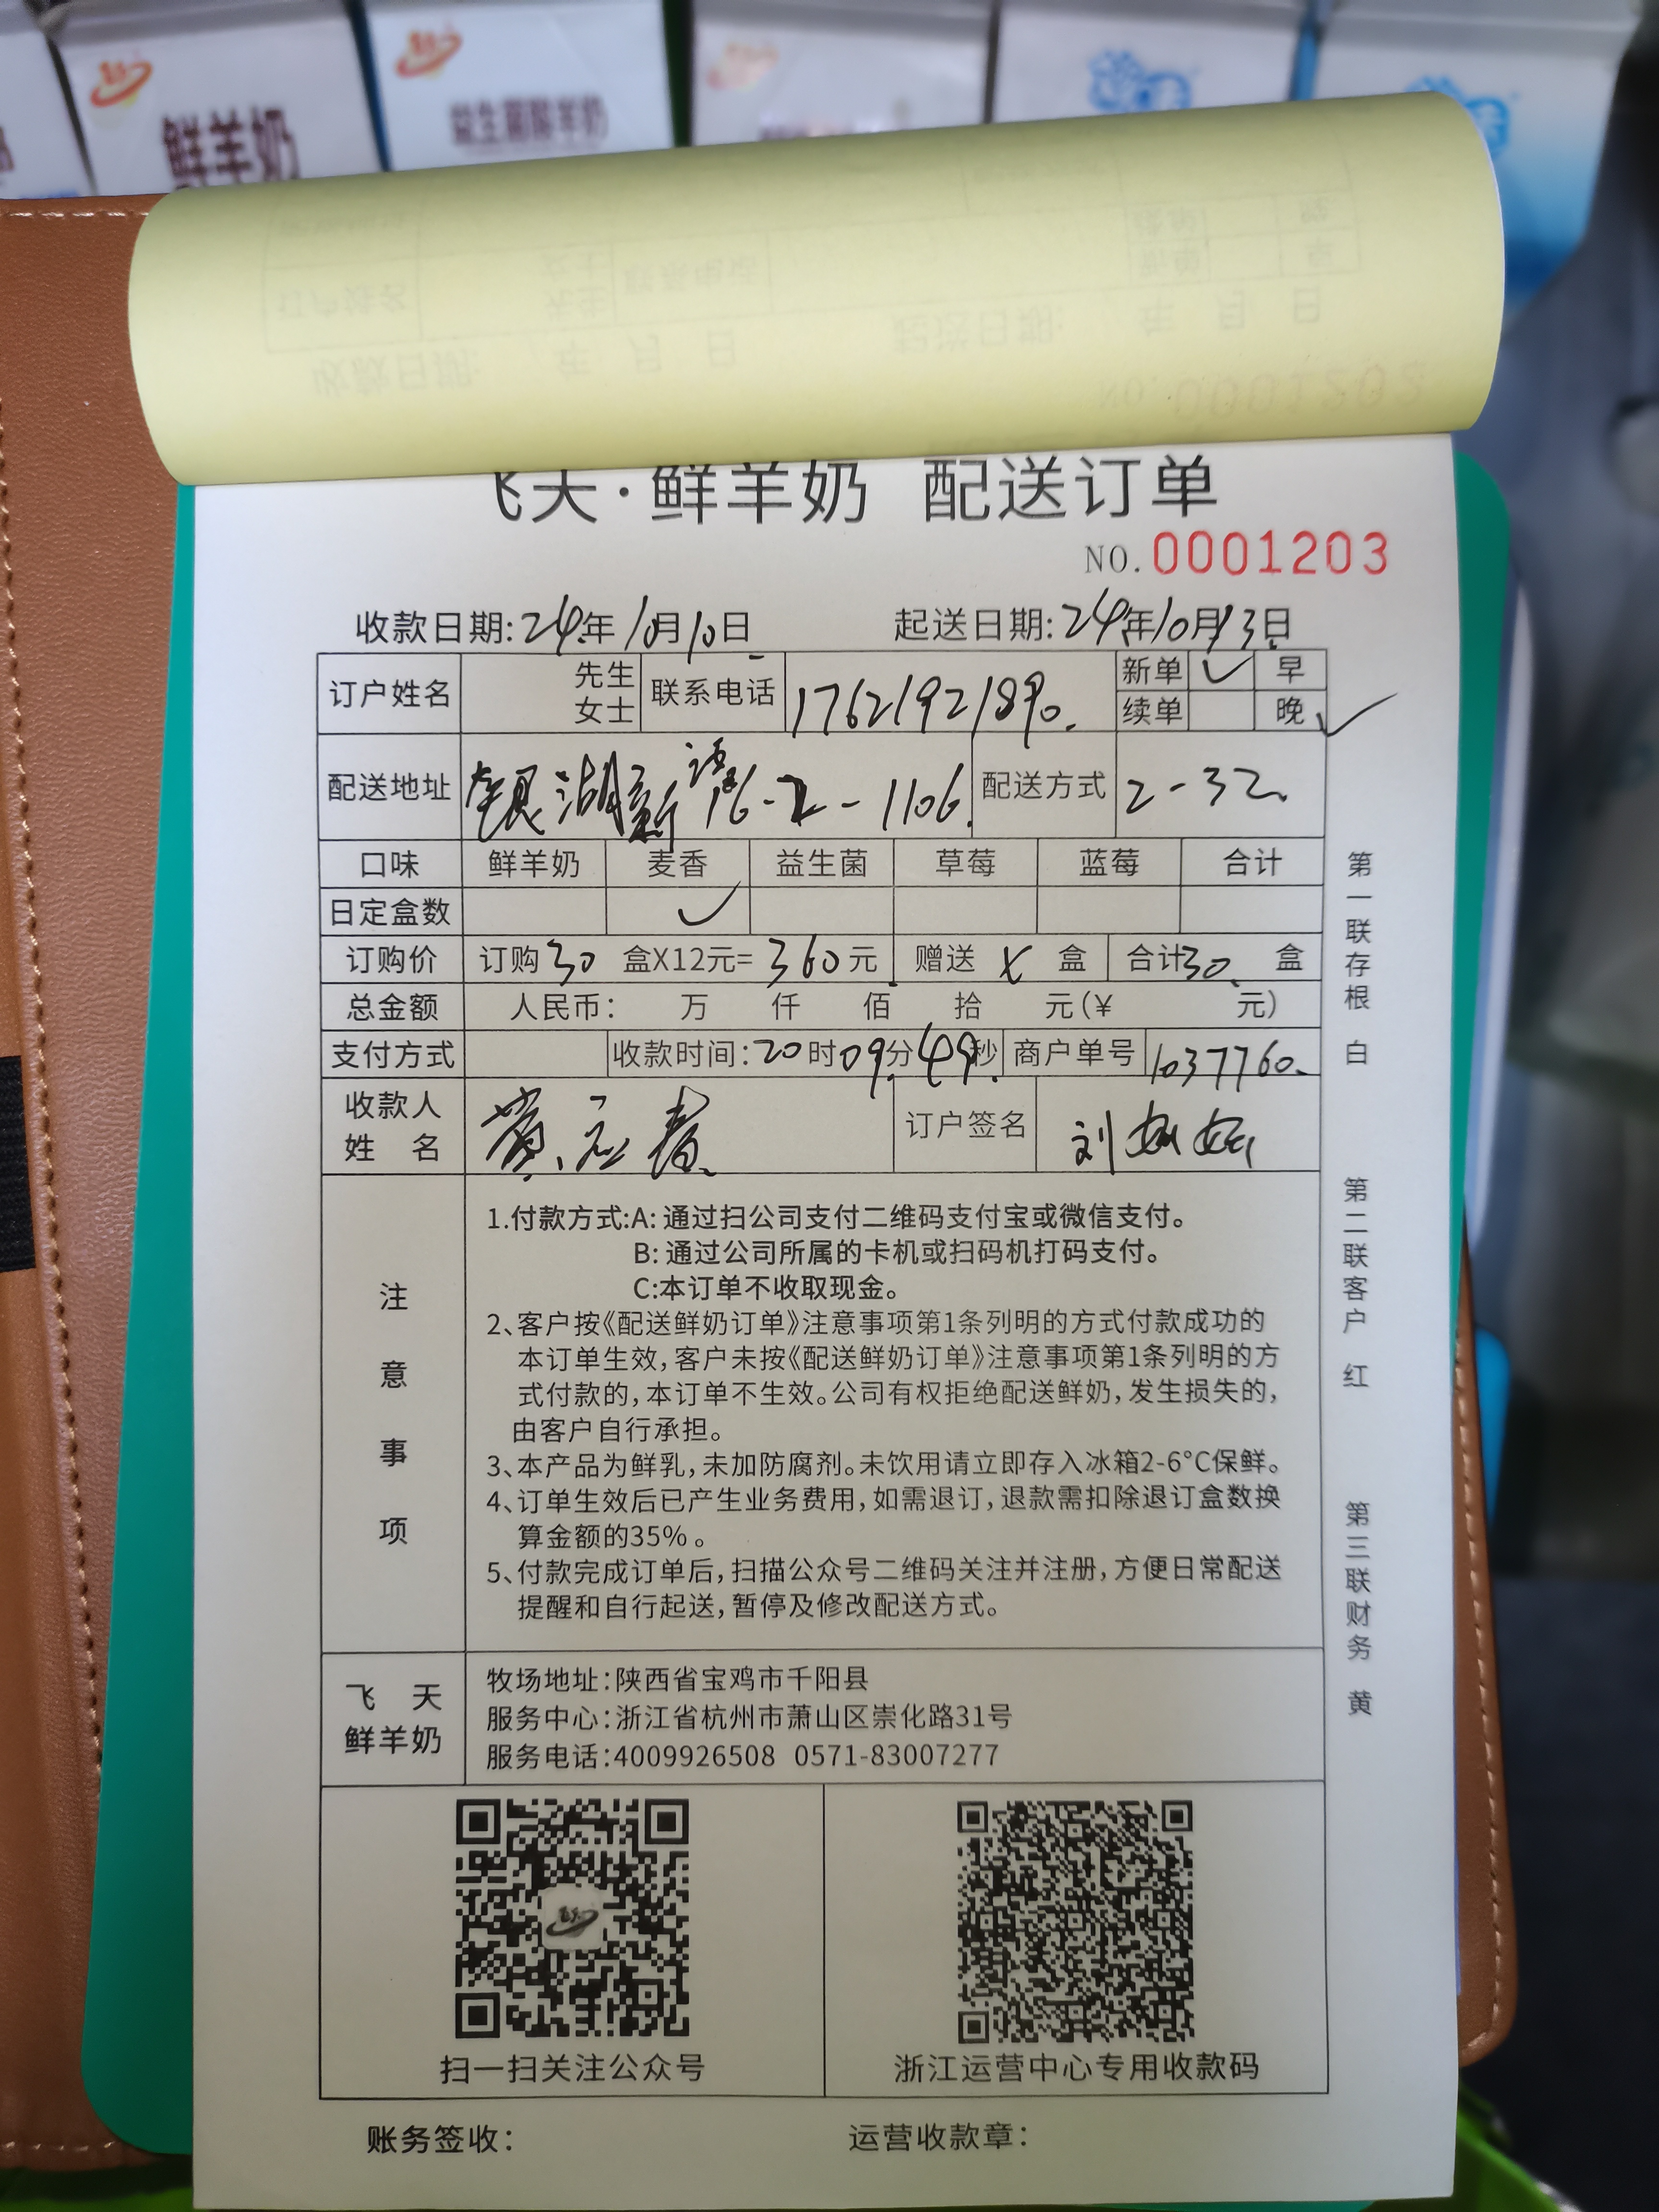 鲜羊奶
益生菌酸羊奶
飞天·鲜羊奶 配送订单
NO.0001203
收款日期:24年10月10日 起送日期:24年10月13日
订户姓名 先生 女士 联系电话 17621921890. 新单 ✓ 早
续单 晚 ✓
配送地址 银湖新语 16-2-1106. 配送方式 2-32.
口味 鲜羊奶 麦香 益生菌 草莓 蓝莓 合计
日定盒数 ✓
订购价 订购30 盒X12元=360元 赠送 X 盒 合计30 盒
总金额 人民币: 万 仟 佰 拾 元(¥ 元)
支付方式 收款时间:20时09分49秒 商户单号 1037760.
收款人
姓 名 黄应春 订户签名 刘
注意事项
1.付款方式:A: 通过扫公司支付二维码支付宝或微信支付。
B: 通过公司所属的卡机或扫码机打码支付。
C:本订单不收取现金。
2、客户按《配送鲜奶订单》注意事项第1条列明的方式付款成功的
本订单生效,客户未按《配送鲜奶订单》注意事项第1条列明的方
式付款的,本订单不生效。公司有权拒绝配送鲜奶,发生损失的,
由客户自行承担。
3、本产品为鲜乳,未加防腐剂。未饮用请立即存入冰箱2-6°C保鲜。
4、订单生效后已产生业务费用,如需退订,退款需扣除退订盒数换
算金额的35%。
5、付款完成订单后,扫描公众号二维码关注并注册,方便日常配送
提醒和自行起送,暂停及修改配送方式。
飞 天
鲜羊奶
牧场地址:陕西省宝鸡市千阳县
服务中心:浙江省杭州市萧山区崇化路31号
服务电话:4009926508 0571-83007277
扫一扫关注公众号 浙江运营中心专用收款码
账务签收: 运营收款章:
第一联存根 白
第二联客户 红
第三联财务 黄